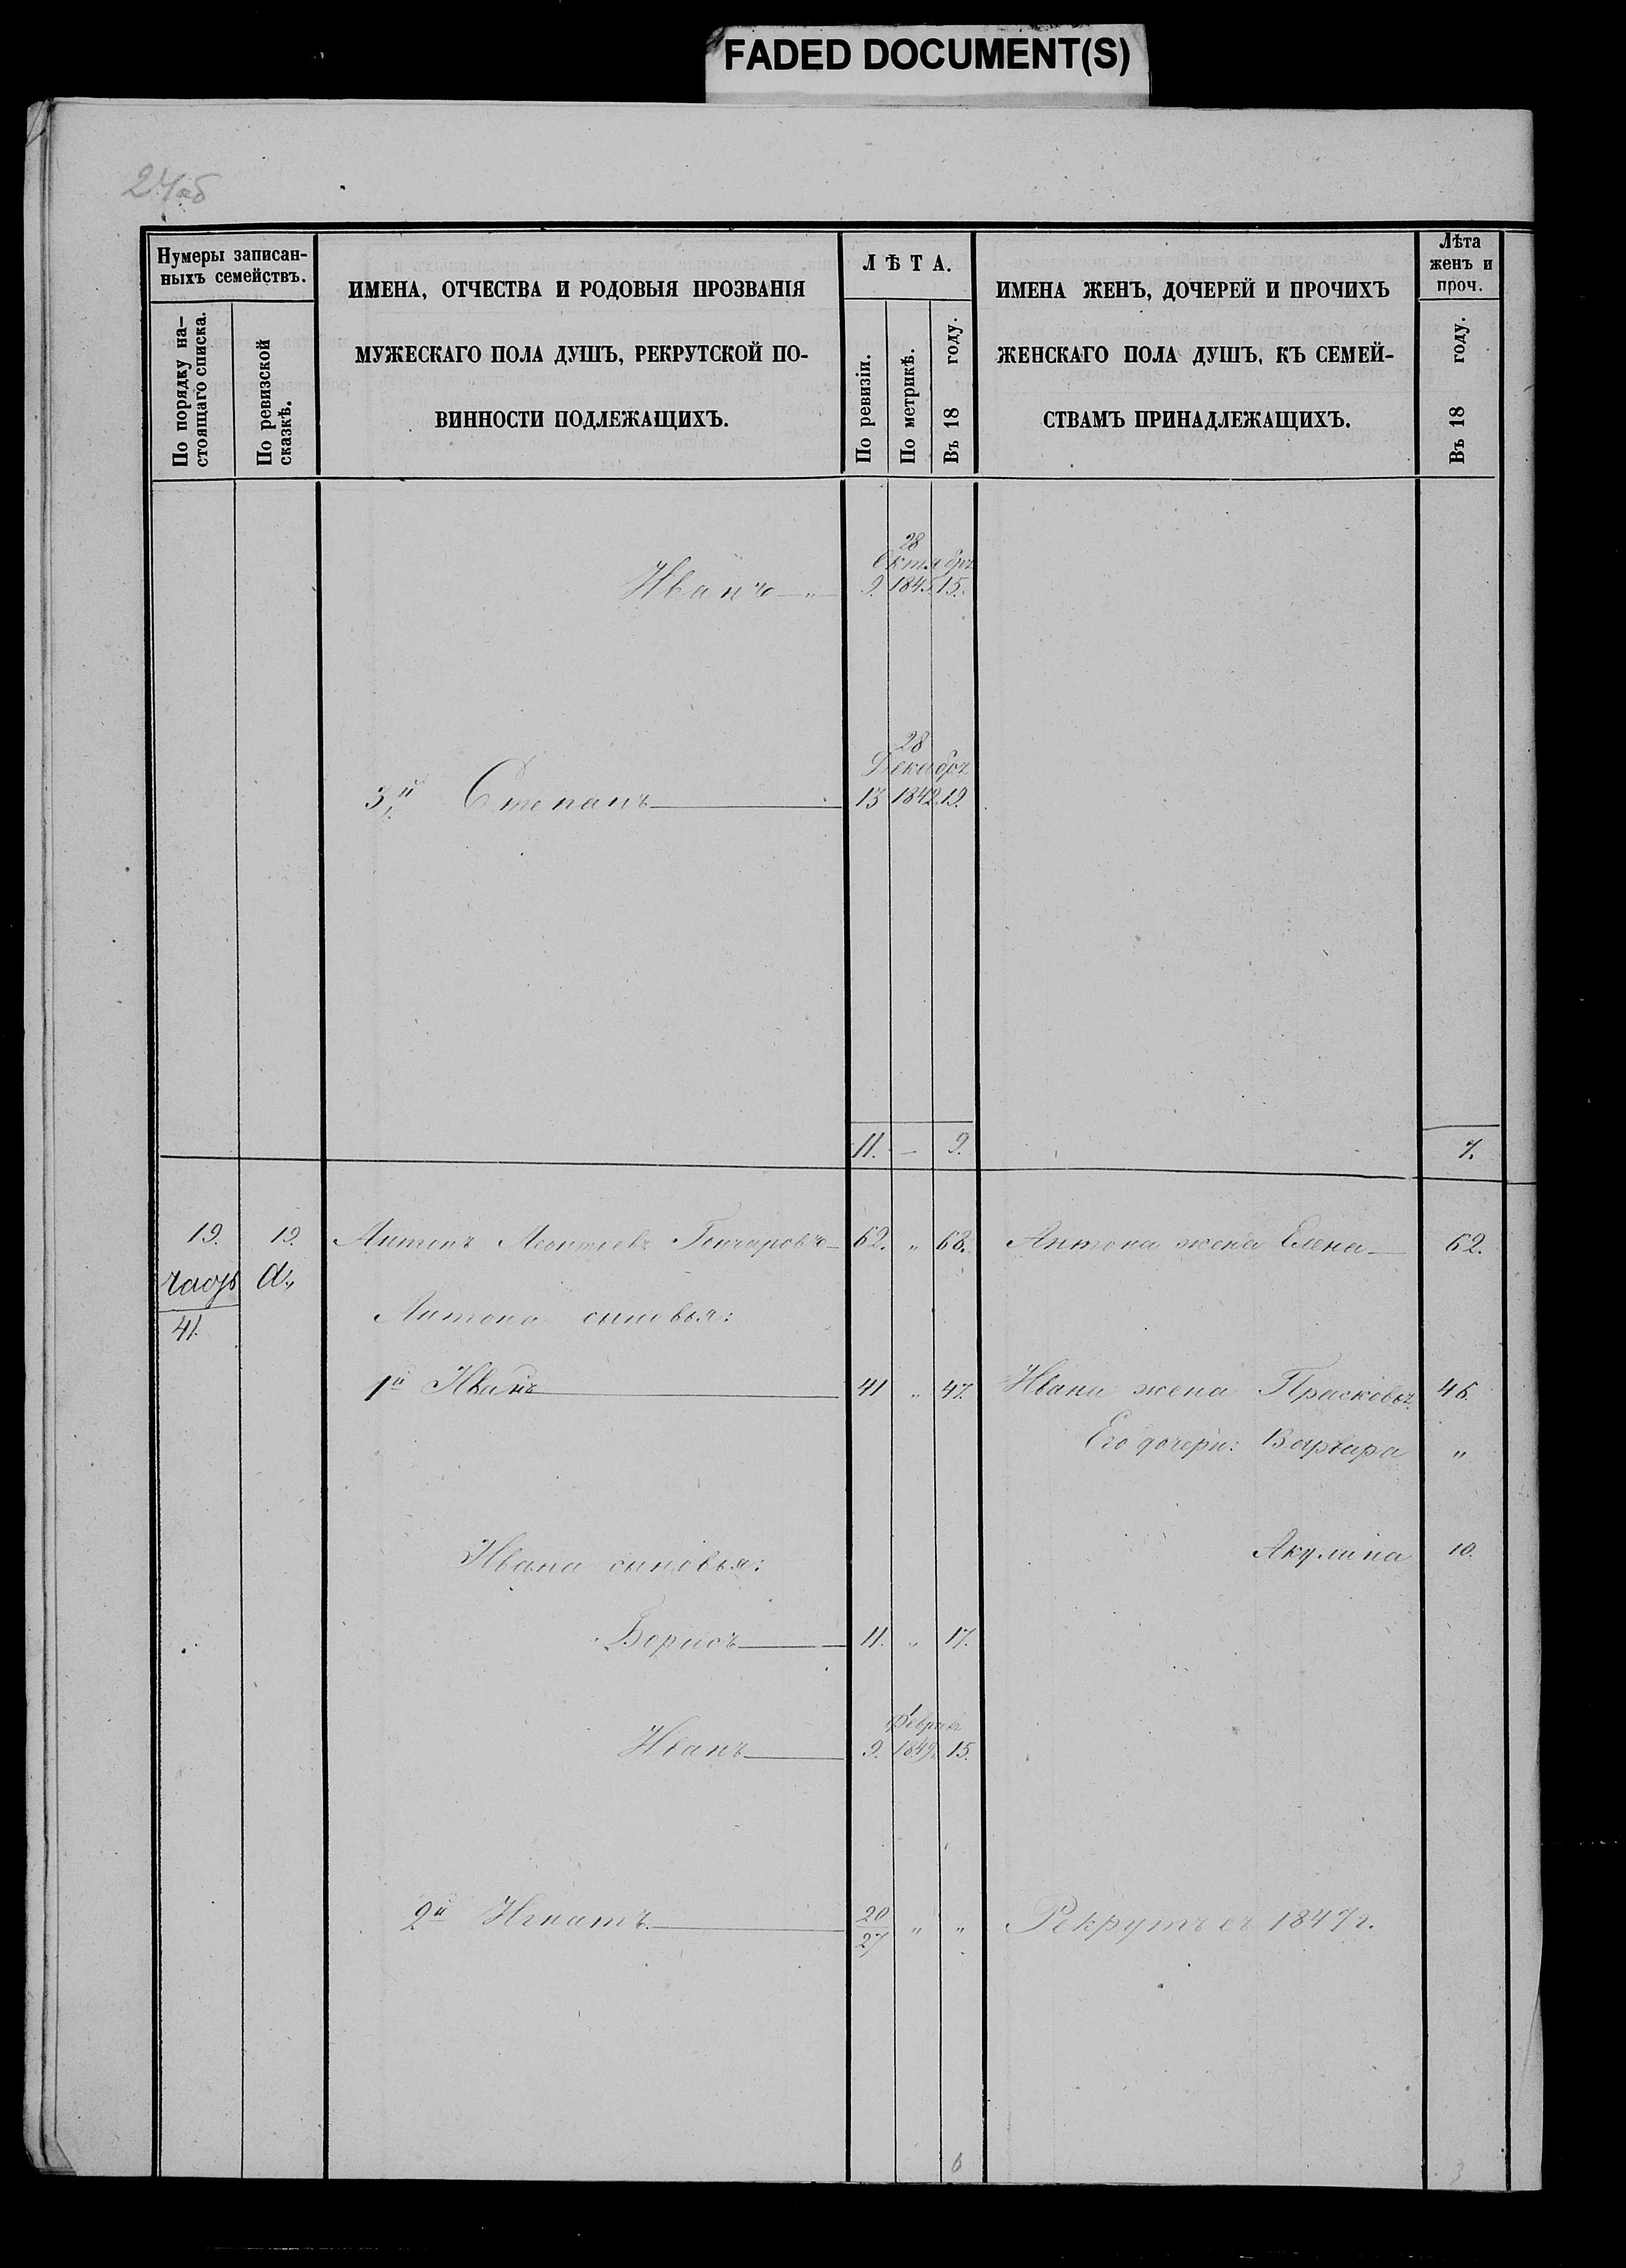 FADED DOCUMENT(S)
24об
Нумеры записан-
ныхъ семействъ.
По порядку на-
стоящаго списка.
По ревизской
сказкѣ.
ИМЕНА, ОТЧЕСТВА И РОДОВЫЯ ПРОЗВАНІЯ
МУЖЕСКАГО ПОЛА ДУШЪ, РЕКРУТСКОЙ ПО-
ВИННОСТИ ПОДЛЕЖАЩИХЪ.
ЛѢТА.
По ревизіи.
По метрикѣ.
Въ 18 году.
ИМЕНА ЖЕНЪ, ДОЧЕРЕЙ И ПРОЧИХЪ
ЖЕНСКАГО ПОЛА ДУШЪ, КЪ СЕМЕЙ-
СТВАМЪ ПРИНАДЛЕЖАЩИХЪ.
Лѣта
женъ и
проч.
Въ 18 году.
28
Октября
Иванъ — „ — 9. 1845. 15.
28
Декабря
3й Степанъ — 13 1842. 19.
11. — 9. 7.
19. 19. Антонъ Леонтьевъ Гончаровъ — 62. „ 68. Антона жена Елена — 62.
часть а.,
41.
Антона сыновья:
1й Иванъ — 41 „ 47. Ивана жена Прасковья 46.
Его дочери: Варвара „
Акулина 10.
Ивана сыновья:
Борисъ — 11. „ 17.
1
Февраля
Иванъ — 9. 1849. 15.
2й Игнатъ — 20 „ „ Рекрутъ съ 1847г.
27
6 3